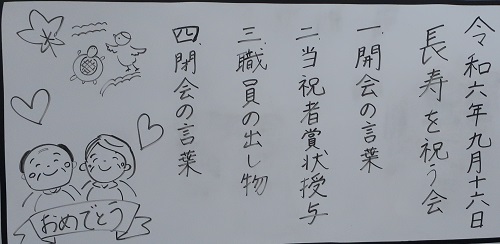 令和六年九月十六日
長寿を祝う会
一、開会の言葉
二、当祝者賞状授与
三、職員の出し物
四、閉会の言葉
おめでとう